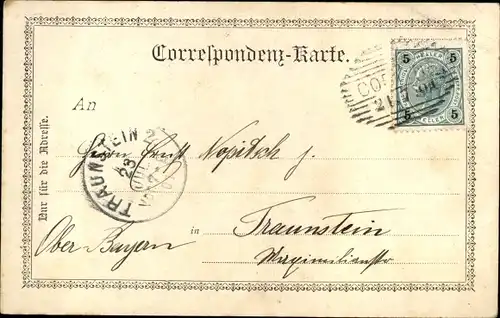 Correspondenz-Karte.
5 5
5 5
An
Nur für die Adresse.
TRAUNSTEIN 2
23
Herrn Ernst Nopitsch
in Traunstein
Ober Bayern
Maximilianstr